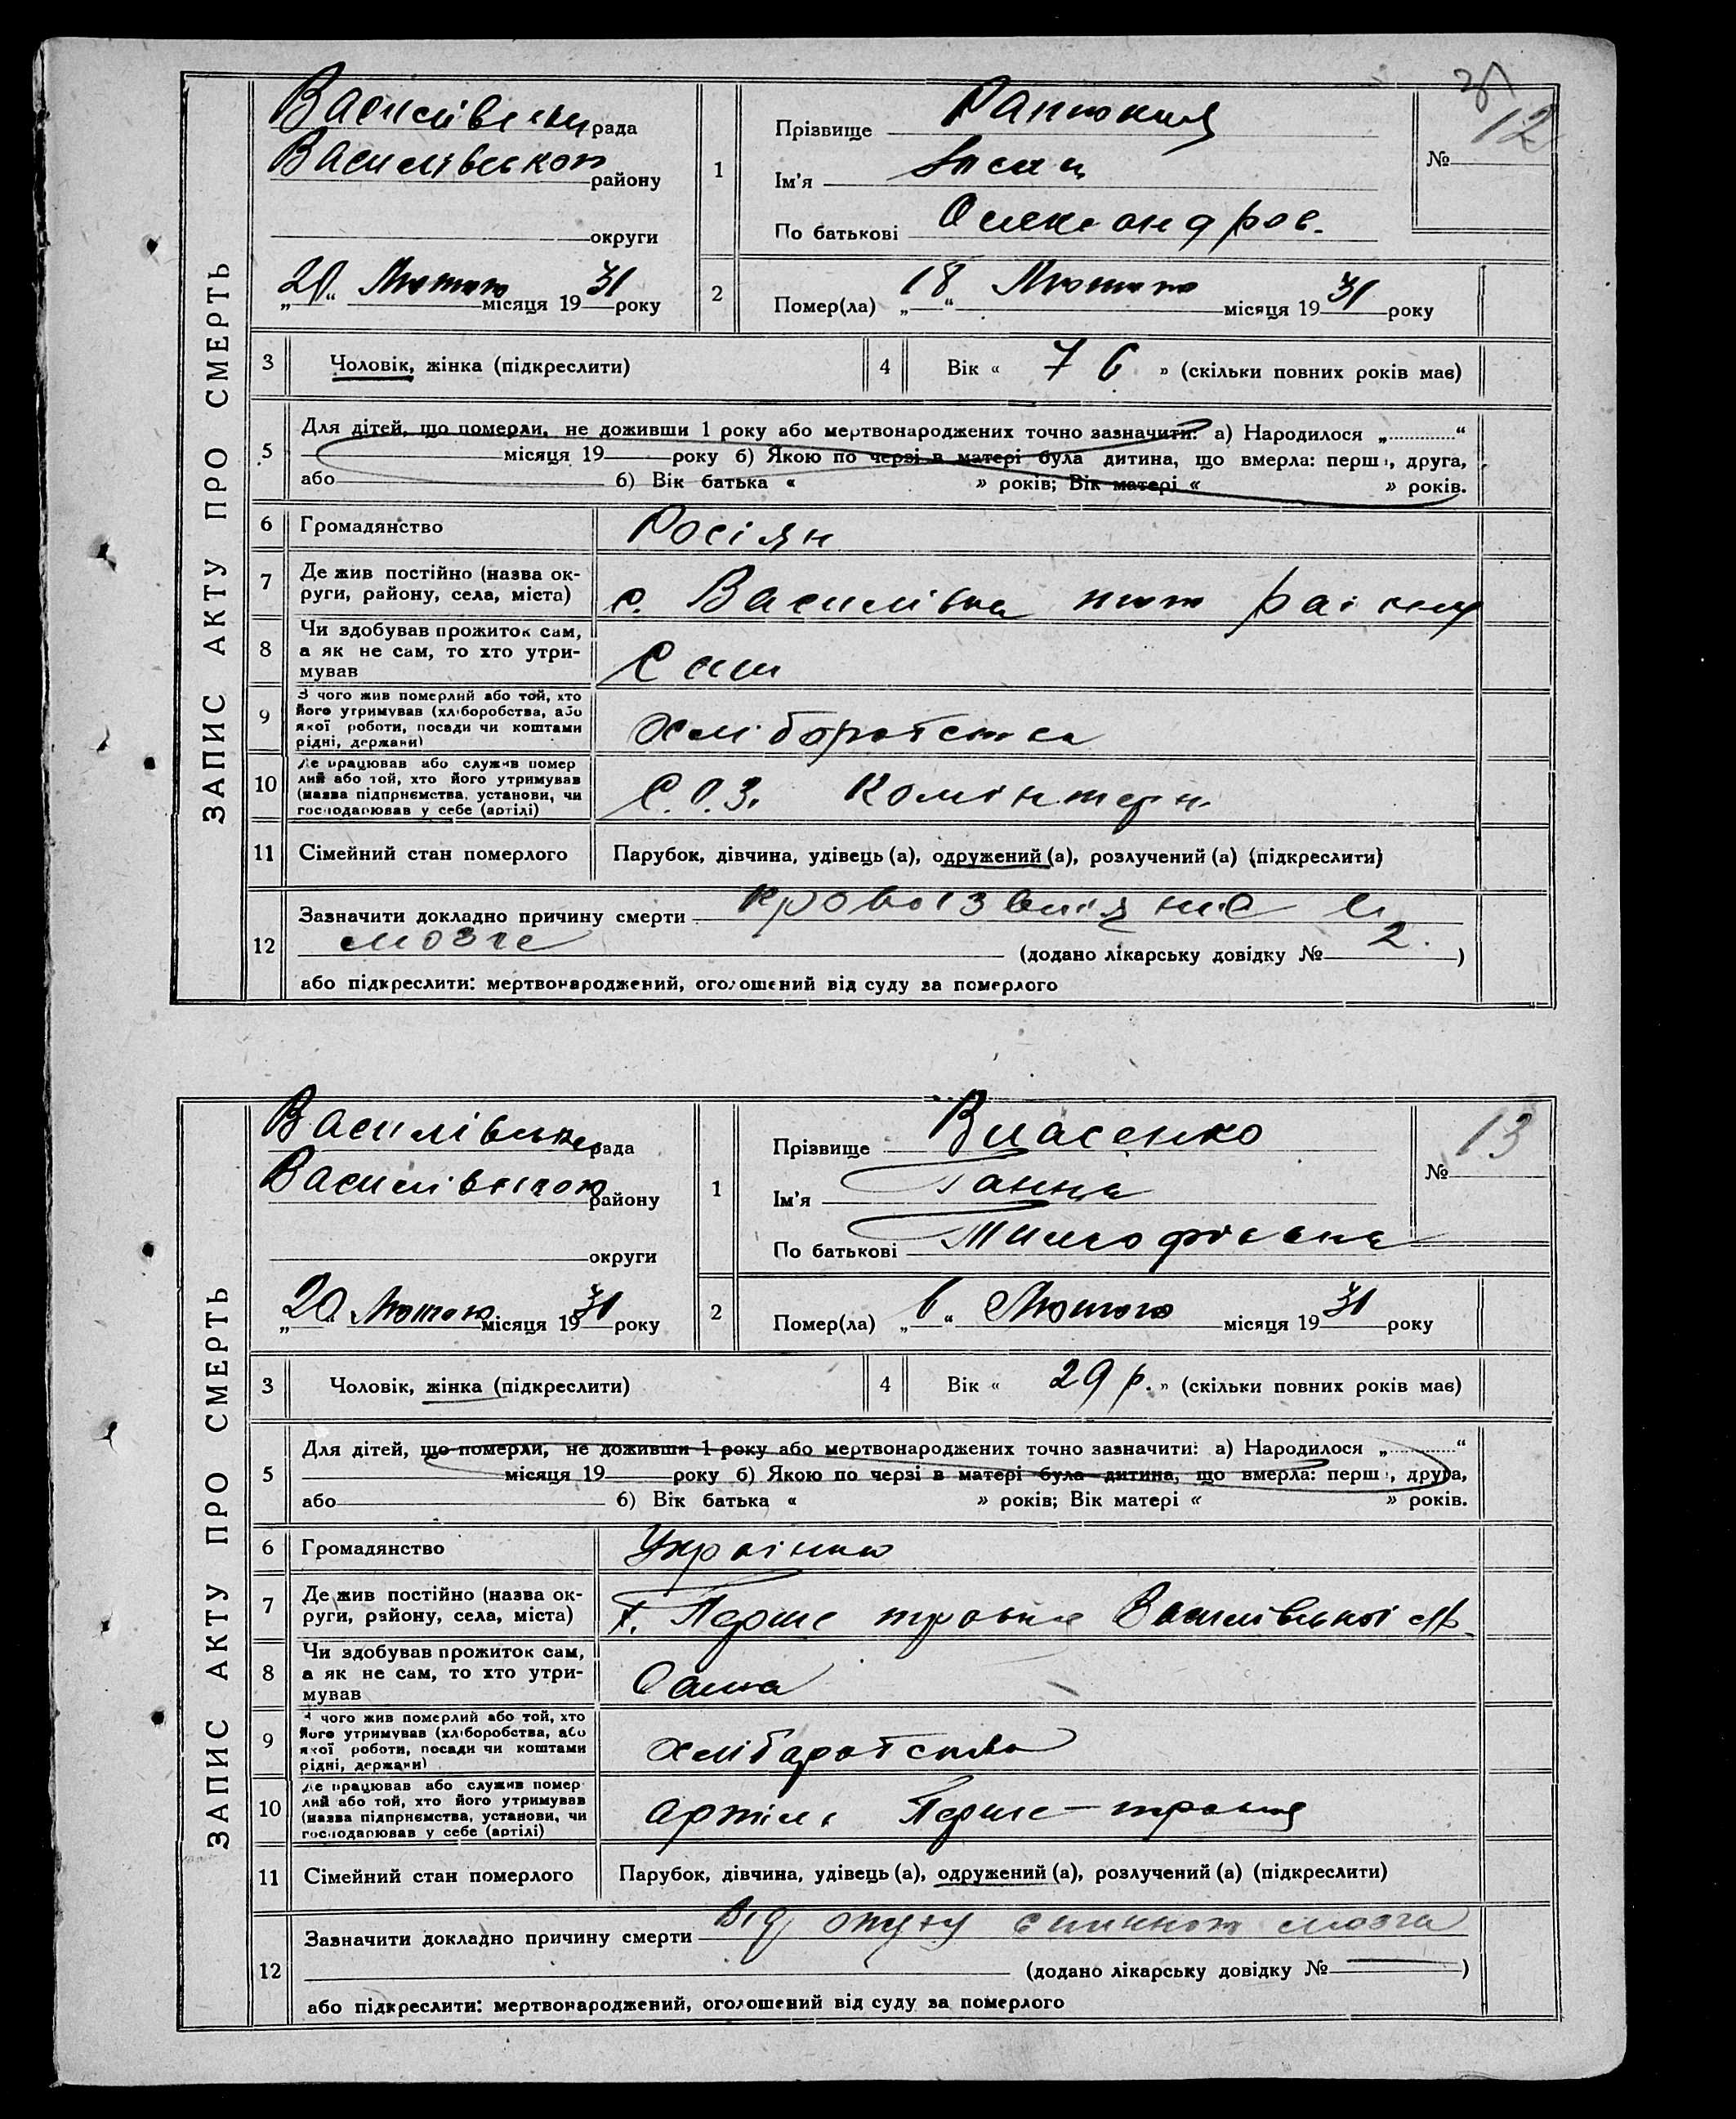 ЗАПИС АКТУ ПРО СМЕРТЬ
Василівська рада
Василівського району
округи
„20“ Лютого місяця 1931 року
1
Прізвище
Ім'я
По батькові Олександров.
№ 12
2
Помер(ла) „18“ Лютого місяця 1931 року
3 Чоловік, жінка (підкреслити)
4 Вік « 76 » (скільки повних років має)
5 Для дітей, що померли, не доживши 1 року або мертвонароджених точно зазначити: а) Народилося „.............“
місяця 19 року б) Якою по черзі в матері була дитина, що вмерла: перша, друга,
або б) Вік батька « » років; Вік матері « » років.
6 Громадянство Росіян
7 Де жив постійно (назва ок-
руги, району, села, міста) с. Василівка того району
8 Чи здобував прожиток сам,
а як не сам, то хто утри-
мував Сам
9 З чого жив померлий або той, хто
його утримував (хліборобства, або
якої роботи, посади чи коштами
рідні, держави) хліборобство
10 Де працював або служив помер
лий або той, хто його утримував
(назва підприємства, установи, чи
господарював у себе (артілі) С.О.З. Комінтерн
11 Сімейний стан померлого Парубок, дівчина, удівець (а), одружений (а), розлучений (а) (підкреслити)
12 Зазначити докладно причину смерти кровоізвліяніє в
мозге (додано лікарську довідку № 2.)
або підкреслити: мертвонароджений, оголошений від суду за померлого
ЗАПИС АКТУ ПРО СМЕРТЬ
Василівська рада
Василівського району
округи
„20“ Лютого місяця 1931 року
1
Прізвище Власенко
Ім'я Ганна
По батькові Тимофіівна
№ 13
2
Помер(ла) „6“ Лютого місяця 1931 року
3 Чоловік, жінка (підкреслити)
4 Вік « 29 р. » (скільки повних років має)
5 Для дітей, що померли, не доживши 1 року або мертвонароджених точно зазначити: а) Народилося „.............“
місяця 19 року б) Якою по черзі в матері була дитина, що вмерла: перша, друга,
або б) Вік батька « » років; Вік матері « » років.
6 Громадянство Українка
7 Де жив постійно (назва ок-
руги, району, села, міста) х. Перше травня Василівської с/р.
8 Чи здобував прожиток сам,
а як не сам, то хто утри-
мував Сама
9 З чого жив померлий або той, хто
його утримував (хліборобства, або
якої роботи, посади чи коштами
рідні, держави) хліборобство
10 Де працював або служив помер
лий або той, хто його утримував
(назва підприємства, установи, чи
господарював у себе (артілі) артіль Перше-травня
11 Сімейний стан померлого Парубок, дівчина, удівець (а), одружений (а), розлучений (а) (підкреслити)
12 Зазначити докладно причину смерти Від мозга
(додано лікарську довідку № —)
або підкреслити: мертвонароджений, оголошений від суду за померлого